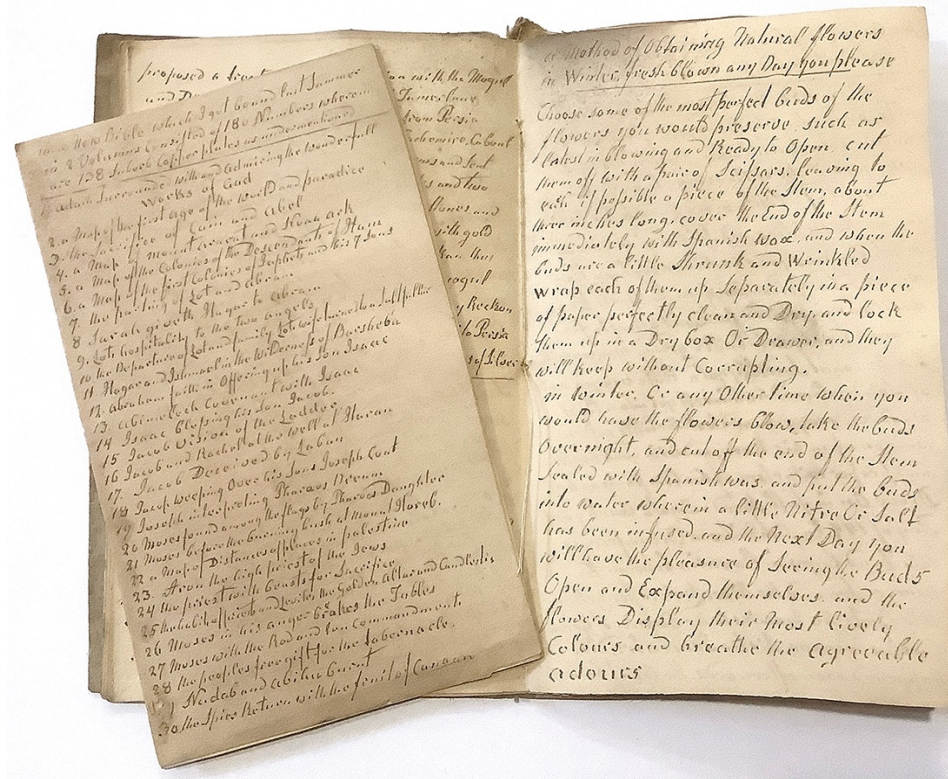 proposed a on with the Mogul
and Tamerlane
from Persia
Caboul
and
and two
Stones and
with gold
mogul
Reckon
to Persia
of Silver
new Bible which I got bound last Summer
in 2 Volumns Consisted of 180 Numbers wherein
are 138 Suberb Copper plates as undermentioned
Adam Surrounded with and admiring the wonderfull
Works of God
2. a Map of the first age of the world and paradice
3. the Sacrifice of Cain and abel
4. a Map of mount ararat and Noah ark
5. a Map of the Colonies of the Descendents of Ham
6. a Map of the first Colonies of Japhet and his 7 Sons
7. the parting of Lot and Abram
8 Sarah giveth Hagar to abram
9. Lots hospitality to the two angels
10 the Departure of Lot and family Lots wife turned to a Salt pillar
11. Hagar and Ishmael in the wilderness of Barsheba
12. abraham faith in Offering up his Son Isaac
13. abimeleck Covenant with Isaac
14 Isaac blessing his Son Jacob
15 Jacob vision of the Ladder
16 Jacob and Rachel at the well of Haran
17. Jacob Deceived by Laban
18 Jacop weeping Over his Sons Joseph Coat
19 Joseph interpreting Pharaos Dream
20 Moses found among the flags by Pharaos Daughter
21 Moses before the burning bush at Mount Horeb.
22 a Map of Distances of places in palestine
23. Aron the high priest of the Jews
24 the priest with beasts for Sacrifice
25 the habit of priest and Levite, the Golden, Altar and Candlestix
26 Moses in his anger brakes the Tables
27 Moses with the Rod and ten Commandment
28 the peoples free gift for the tabernacle.
Nadab and abihu burnt
30 the Spies Return with the fruit of Canaan
a Method of Obtaining Natural flowers
in Winter, fresh blown any Day you please
Choose some of the most perfect buds of the
flowers you would preserve, such as
latest in blowing and Ready to Open, cut
them off with a pair of Scissars, leaving to
each if possible a piece of the Stem, about
three inches long, cover the End of the Stem
immediately with Spanish wax, and when the
buds are a little Shrunk and Wrinkled
wrap each of them up Separately in a piece
of paper perfectly clean and Dry and lock
them up in a Dry box Or Drawer, and they
will keep without Corrupting.
in winter, Or any Other time when you
would have the flowers blow, take the buds
Overnight, and cut off the end of the Stem
Sealed with Spanish was, and put the buds
into water wherein a little Nitre Or Salt
has been infused, and the Next Day you
will have the pleasure of Seeing the Buds
Open and Expand themselves, and the
flowers Display their Most lively
Colours and breathe the agreeable
adours